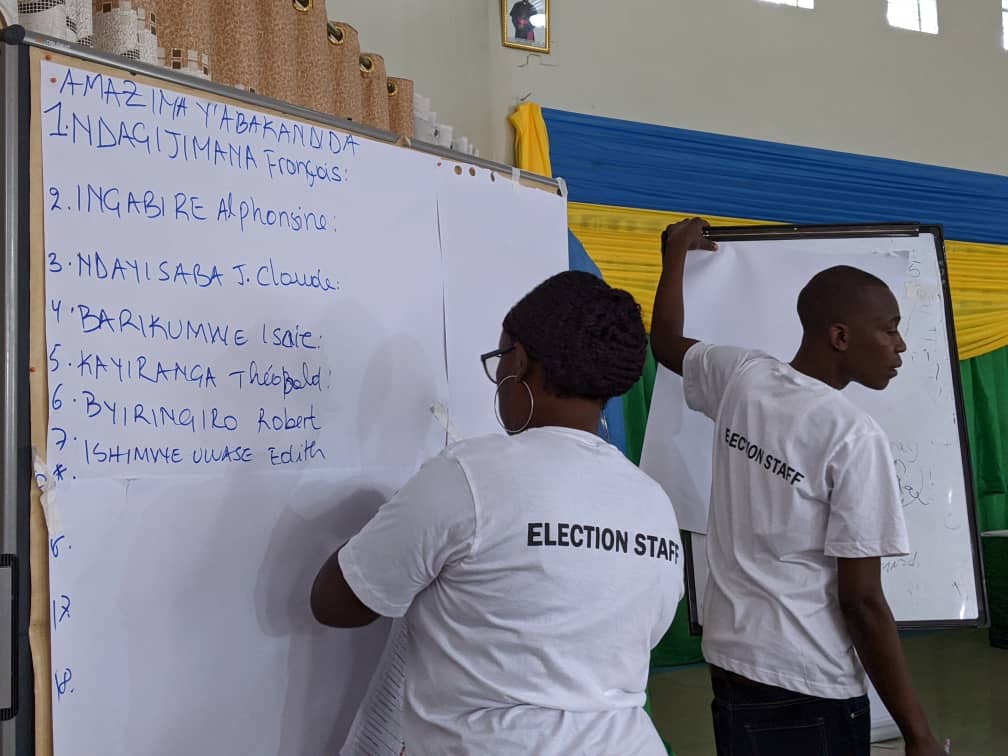 AMAZINA Y'ABAKANDIDA
1. NDAGIJIMANA François:
2. INGABIRE Alphonsine:
3. NDAYISABA J. Claude:
4. BARIKUMWE Isaie:
5. KAYIRANGA Théobald:
6. BYIRINGIRO Robert
7. ISHIMWE UWASE Edith
8.
17.
18.
ELECTION STAFF
ELECTION STAFF